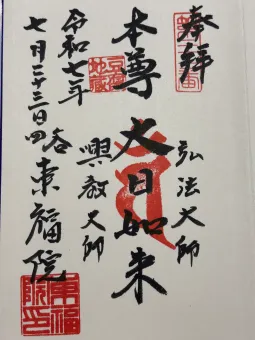 奉拝
弘法大師
本尊 大日如来
興教大師
豆腐地蔵
令和七年
七月二十三日
四谷 東福院
東福院印